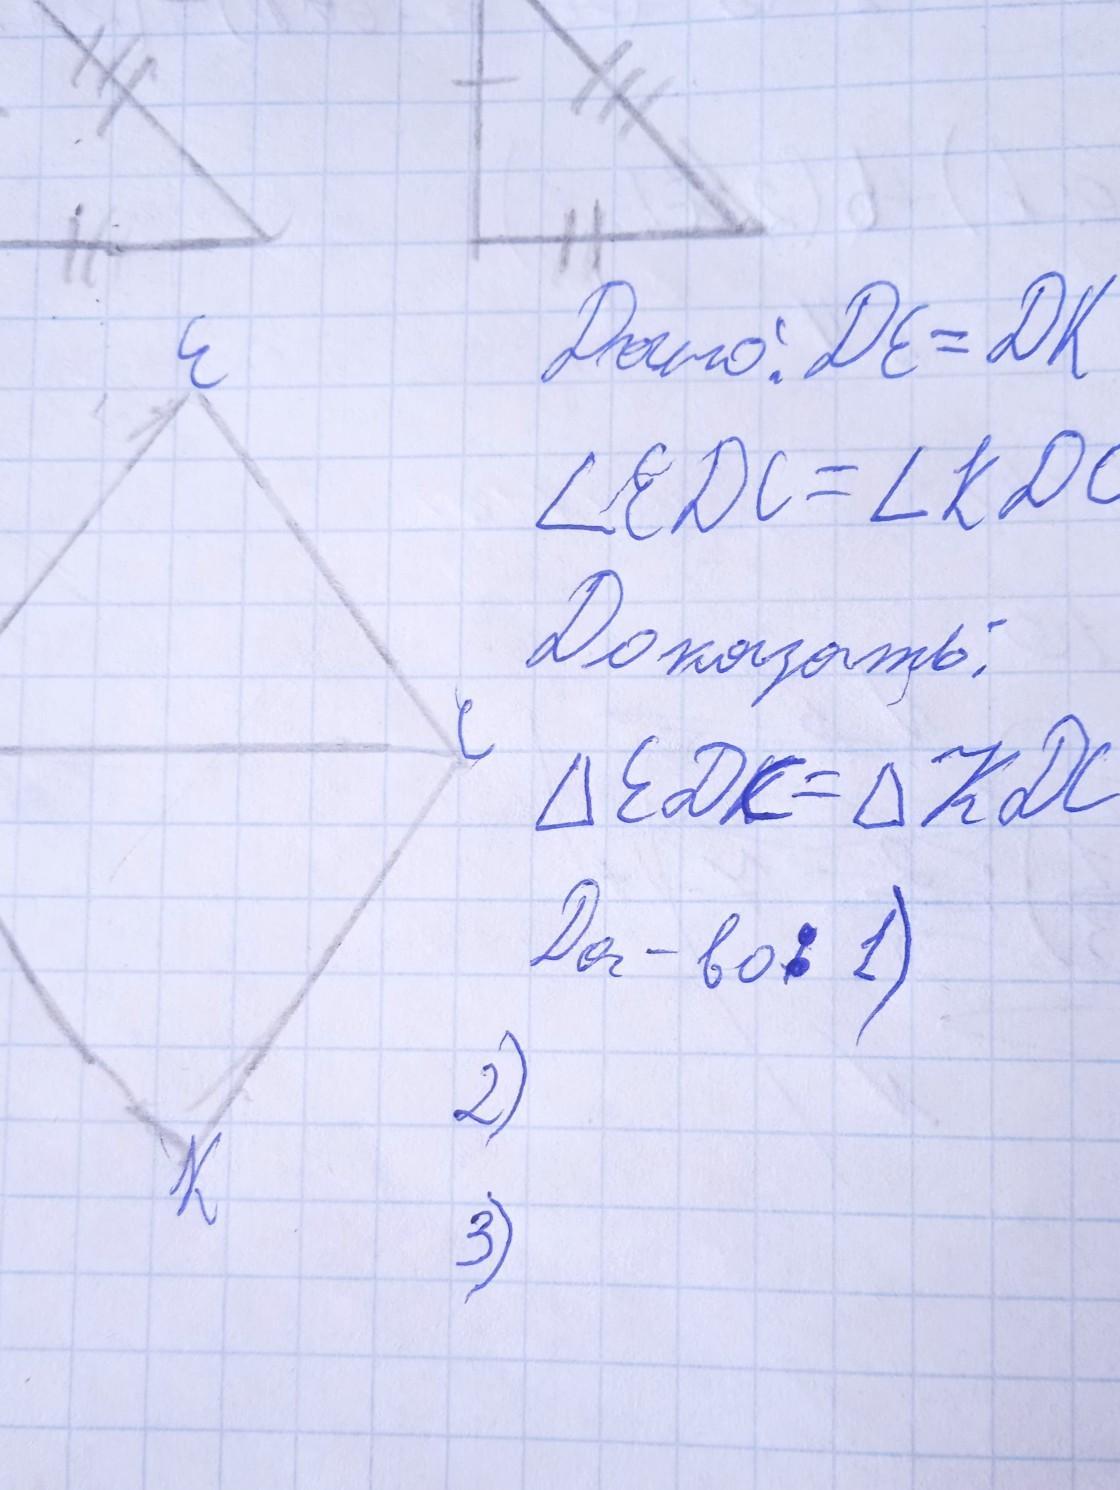 E
Дано: DE = DK
∠EDC = ∠KDC
Доказать:
C
△EDC = △KDC
Док-во: 1)
2)
K
3)